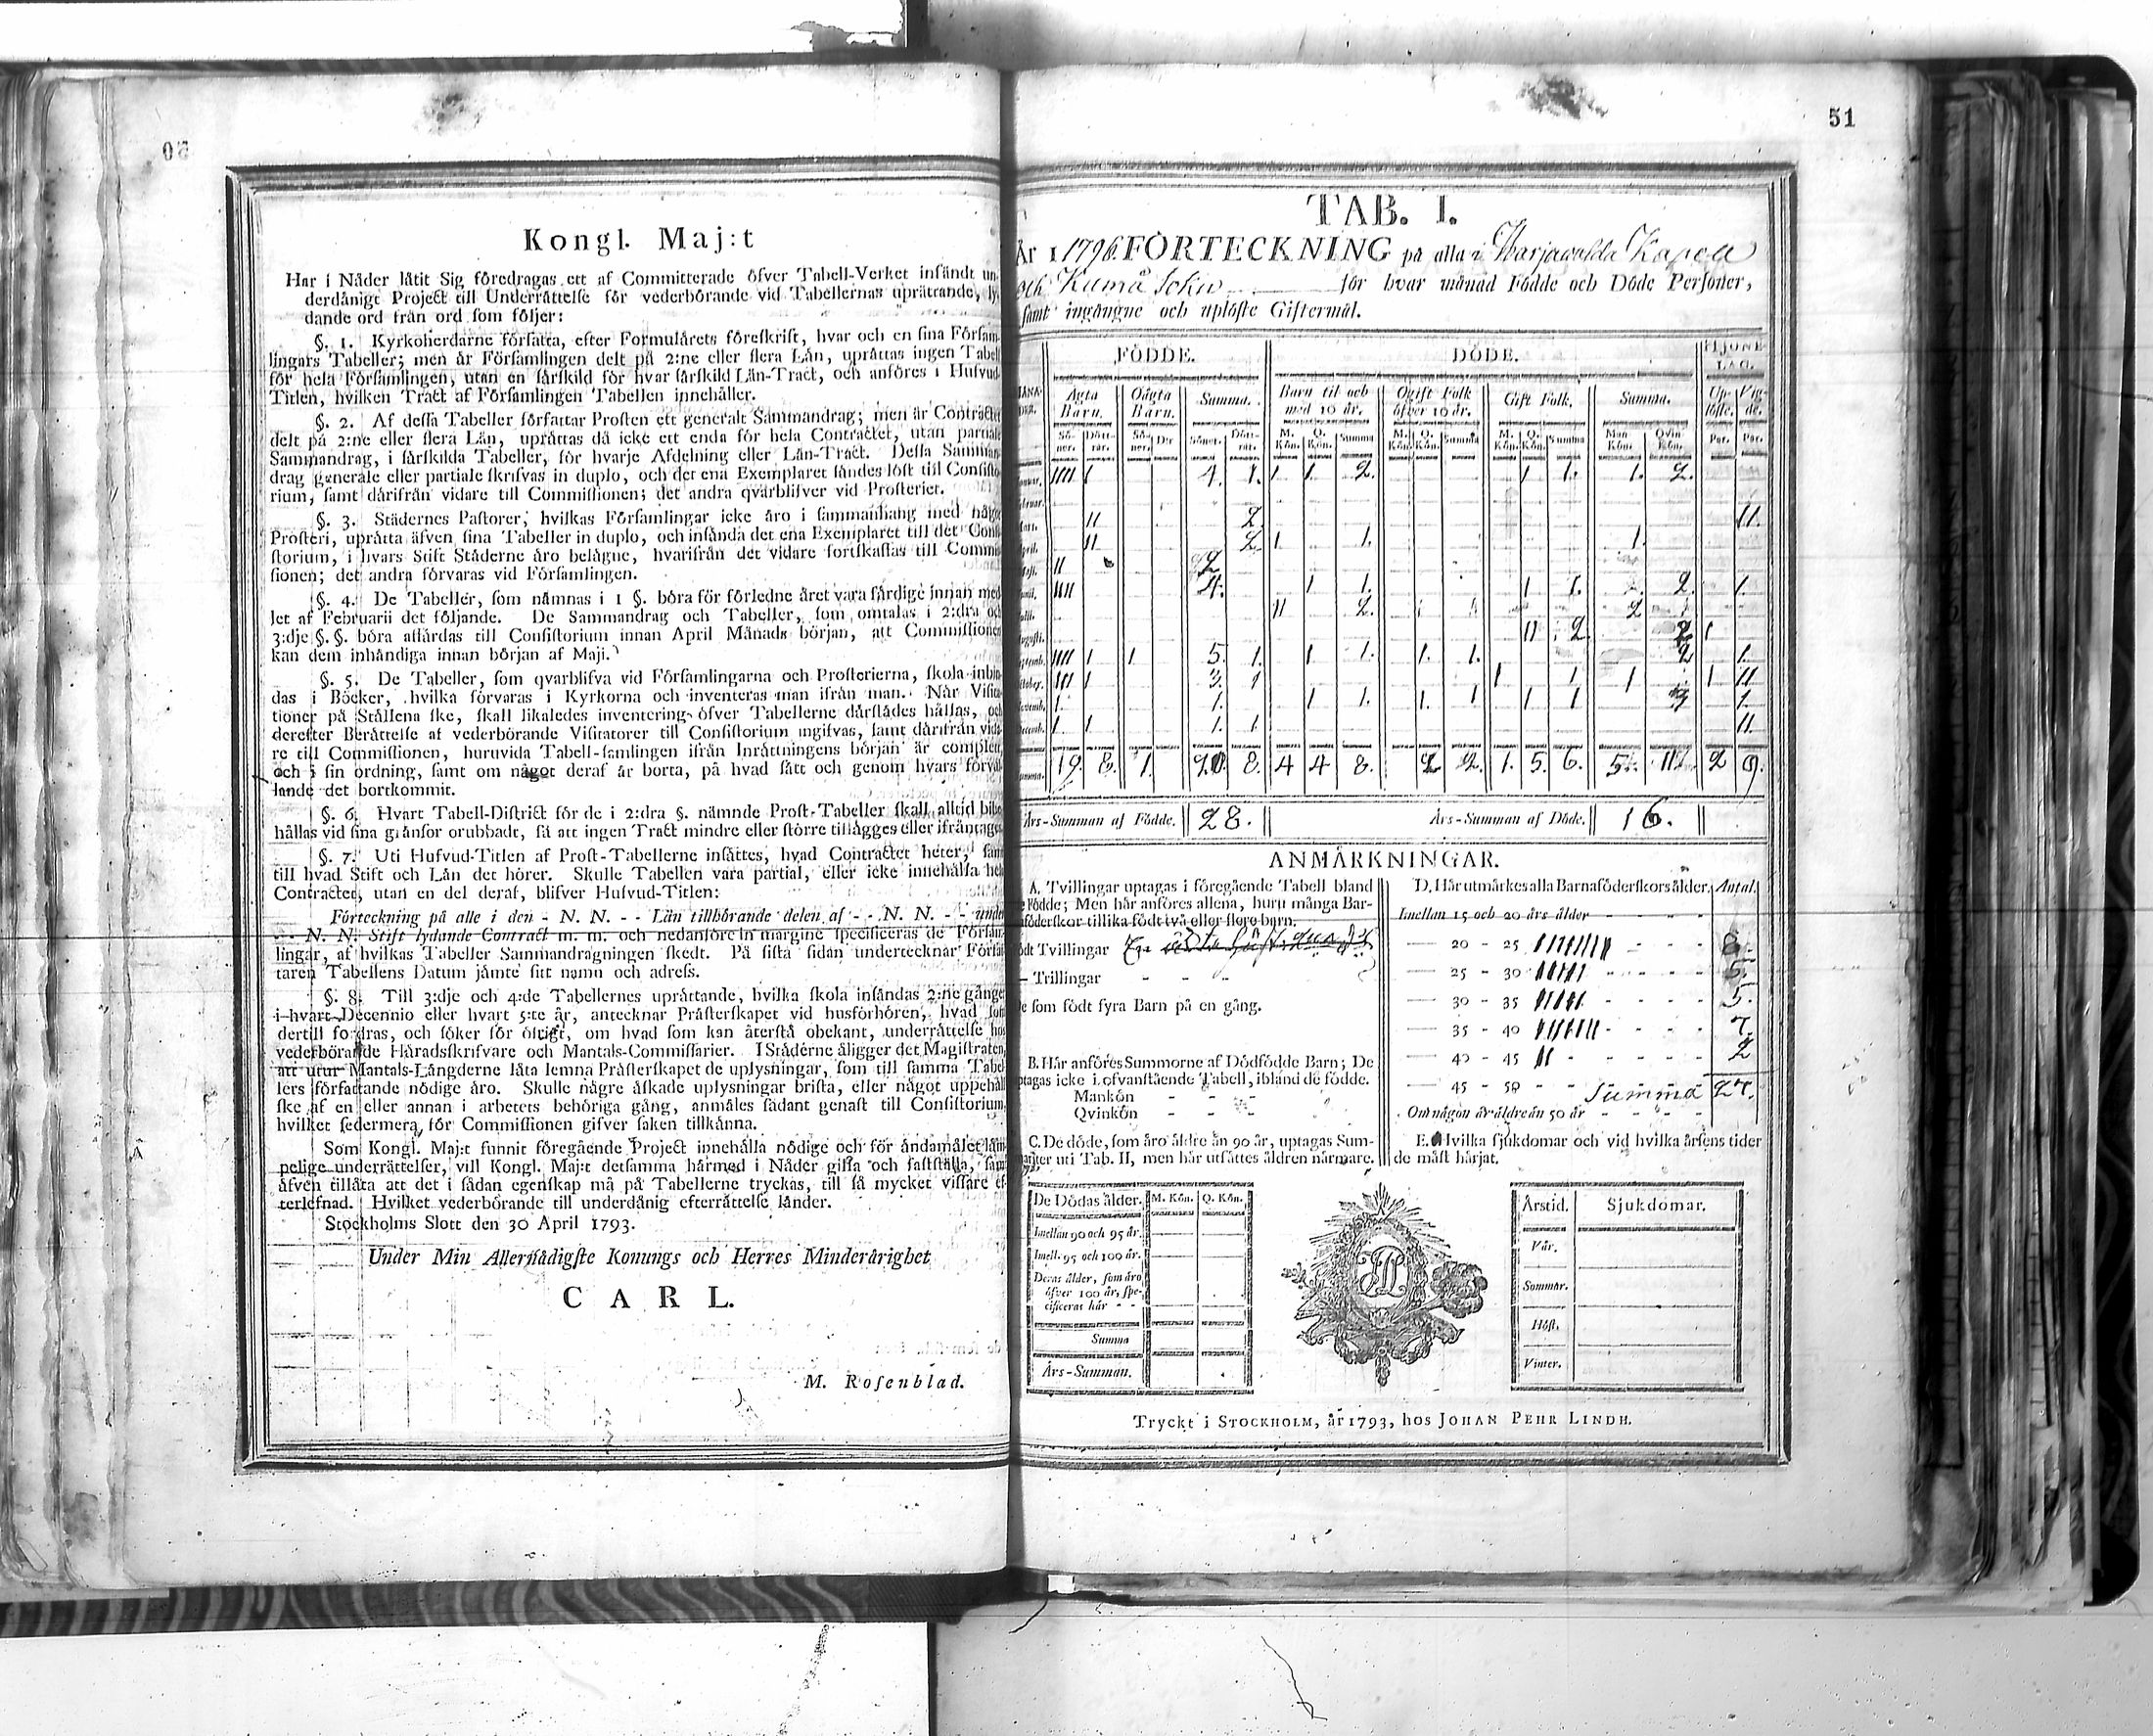 50
Kongl. Maj:t
Har i Nåder låtit Sig föredragas ett af Committerade öfver Tabell-Verket insändt un-
derdånigt Project till Underråttelse för vederbörande vid Tabellernas upråttande, ly-
dande ord från ord som följer:
§. 1. Kyrkoherdarne författa, efter Formulårets föreskrift, hvar och en sina Försam-
lingars Tabeller; men år Församlingen delt på 2:ne eller flera Lån, upråttas ingen Tabell
för hela Församlingen, utan en sårskild för hvar sårskild Lån-Tract, och anföres i Hufvud-
Titlen, hvilken Tract af Församlingen Tabellen innehåller.
§. 2. Af dessa Tabeller författar Prosten ett generalt Sammandrag; men år Contractet
delt på 2:ne eller flera Lån, upråttas då icke ett enda för hela Contractet, utan partiale
Sammandrag, i sårskilda Tabeller, för hvarje Afdelning eller Lån-Tract. Dessa Samman-
drag generale eller partiale skrifvas in duplo, och det ena Exemplaret såndes löst till Consisto-
rium, samt dårifrån vidare till Commissionen; det andra qvarblifver vid Prosteriet.
§. 3. Städernes Pastorer, hvilkas Församlingar icke åro i sammanhang med något
Prosteri, upråtta åfven sina Tabeller in duplo, och insånda det ena Exemplaret till det Consi-
storium, i hvars Stift Ståderne åro belågne, hvarifrån det vidare fortskaffas till Commis-
sionen; det andra förvaras vid Församlingen.
§. 4. De Tabeller, som nåmnas i 1 §. böra för förledne året vara fårdige innan med-
let af Februarii det följande. De Sammandrag och Tabeller, som omtalas i 2:dra och
3:dje §. §. böra affårdas till Consistorium innan April Månads början, att Commissionen
kan dem inhåndiga innan början af Maji.
§. 5. De Tabeller, som qvarblifva vid Församlingarna och Prosterierna, skola inbin-
das i Böcker, hvilka förvaras i Kyrkorna och inventeras man ifrån man. Når Visita-
tioner på Stållena ske, skall likaledes inventering öfver Tabellerne dårstådes hållas, och
derefter Beråttelse af vederbörande Visitatorer till Consistorium ingifvas, samt dårifrån vida-
re till Commissionen, huruvida Tabell-samlingen ifrån Inråttningens början är complett
och i sin ordning, samt om något deraf år borta, på hvad sått och genom hvars förvål-
lande det bortkommit.
§. 6. Hvart Tabell-District för de i 2:dra §. nämnde Prost-Tabeller skall alltid bibe-
hållas vid sina grånsor orubbadt, så att ingen Tract mindre eller större tillågges eller ifråntages.
§. 7. Uti Hufvud-Titlen af Prost-Tabellerne insåttes, hvad Contractet heter, samt
till hvad Stift och Lån det hörer. Skulle Tabellen vara partial, eller icke innehålla hela
Contractet, utan en del deraf, blifver Hufvud-Titlen:
Förteckning på alle i den - N. N. - - Län tillhörande delen af - - N. N. - - under
- - N. N. Stift lydande Contract m. m. och nedanföre in margine specificeras de Församlin-
lingar, af hvilkas Tabeller Sammandragningen skedt. På sista sidan undertecknar Förfat-
taren Tabellens Datum jåmte sitt namn och adress.
§. 8. Till 3:dje och 4:de Tabellernes upråttande, hvilka skola insåndas 2:ne gånger
i hvart Decennio eller hvart 5:te år, antecknar Pråsterskapet vid husförhören, hvad som
dertill fordras, och söker för öfrigt, om hvad som kan återstå obekant, underråttelse hos
vederbörande Håradsskrifvare och Mantals-Commissarier. I Ståderne åligger det Magistraten,
att utur Mantals-Långderne låta lemna Pråsterskapet de uplysningar, som till samma Tabel-
lers författande nödige åro. Skulle någre åskade uplysningar brista, eller något uppehåll
ske af en eller annan i arbetets behöriga gång, anmåles sådant genast till Consistorium,
hvilket sedermera för Commissionen gifver saken tillkånna.
Som Kongl. Maj:t funnit föregående Project innehålla nödige och för åndamålet låm-
pelige underråttelser, vill Kongl. Maj:t detsamma hårmed i Nåder gilla och fastställa, samt
åfven tillåta att det i sådan egenskap må på Tabellerne tryckas, till så mycket vissare ef-
terlefnad. Hvilket vederbörande till underdånig efterråttelse lånder.
Stockholms Slott den 30 April 1793.
Under Min Allernådigste Konungs och Herres Minderårighet
CARL.
M. Rosenblad.
51
TAB. I.
År 1 1796. FÖRTECKNING på alla i Harjawalda Kapell
och Kumå Sokn för hvar månad Födde och Döde Personer,
samt ingångne och uplöste Giftermål.
FÖDDE. DÖDE. HJONELAG.
Ägta Barn. Oägta Barn. Summa. Barn til och med 10 år. Ogift Folk öfver 10 år. Gift Folk. Summa. Uplöste. Vigde.
Söner. Döttrar. Söner. Der Söner. Döttrar. M. Kön. Q. Kön. Summa M. Kön. Q. Kön. Summa M. Kön. Q. Kön. Summa Man Kön. Qvin Kön. Par. Par.
Januar. IIII I 4. 1. 1 1 2. 1 1. 1. 2.
Februar.
Mart. II 2 11.
April. II 2 1 1. 1.
Maji. II 2
Junii. IIII 4. 1 1. 1 1. 2. 1.
Julii. II 2. 2
Augusti. II 2 2 1
Septemb. IIII 1 1 5. 1. 1 1. 1. 1. 2 1.
October. III 1 3. 1 1 1 1 1 11
Novemb. 1. 1. 1 1. 1. 1 1 1 3 1.
Decemb. 1 1 1. 1. 11.
Summa. 19. 8. 1. 20. 8. 4 4 8. 2 2. 1. 5. 6. 5. 11. 2 9.
Års-Summan af Födde. 28. Års-Summan af Döde. 16.
ANMÄRKNINGAR.
A. Tvillingar uptagas i föregående Tabell bland
de Födde; Men här anföres allena, huru många Bar-
naföderskor tillika födt två eller flere barn.
Födt Tvillingar
— Trillingar
De som födt fyra Barn på en gång.
B. Här anföres Summorne af Dödfödde Barn; De
uptagas icke i ofvanstående Tabell, ibland de födde.
Mankön
Qvinkön
C. De döde, som äro äldre än 90 år, uptagas Sum-
mariter uti Tab. II, men här utsättes åldren närmare.
D. Här utmärkes alla Barnaföderskors ålder. Antal.
Imellan 15 och 20 års ålder
— 20 - 25 IIIIIIII 8.
— 25 - 30 IIIII 5.
— 30 - 35 IIIII 5.
— 35 - 40 IIIIIII 7.
— 40 - 45 II 2
— 45 - 50 Summa 27.
Om någon är äldre än 50 år
E. Hvilka sjukdomar och vid hvilka årsens tider
de mäst härjat.
De Dödas ålder. M. Kön. Q. Kön.
Imellan 90 och 95 år.
Imell. 95 och 100 år.
Deras ålder, som äro
öfver 100 år, spe-
cificeras här
Summa
Års-Summan.
Årstid. Sjukdomar.
Vår.
Sommar.
Höst.
Vinter.
Tryckt i STOCKHOLM, år 1793, hos JOHAN PEHR LINDH.